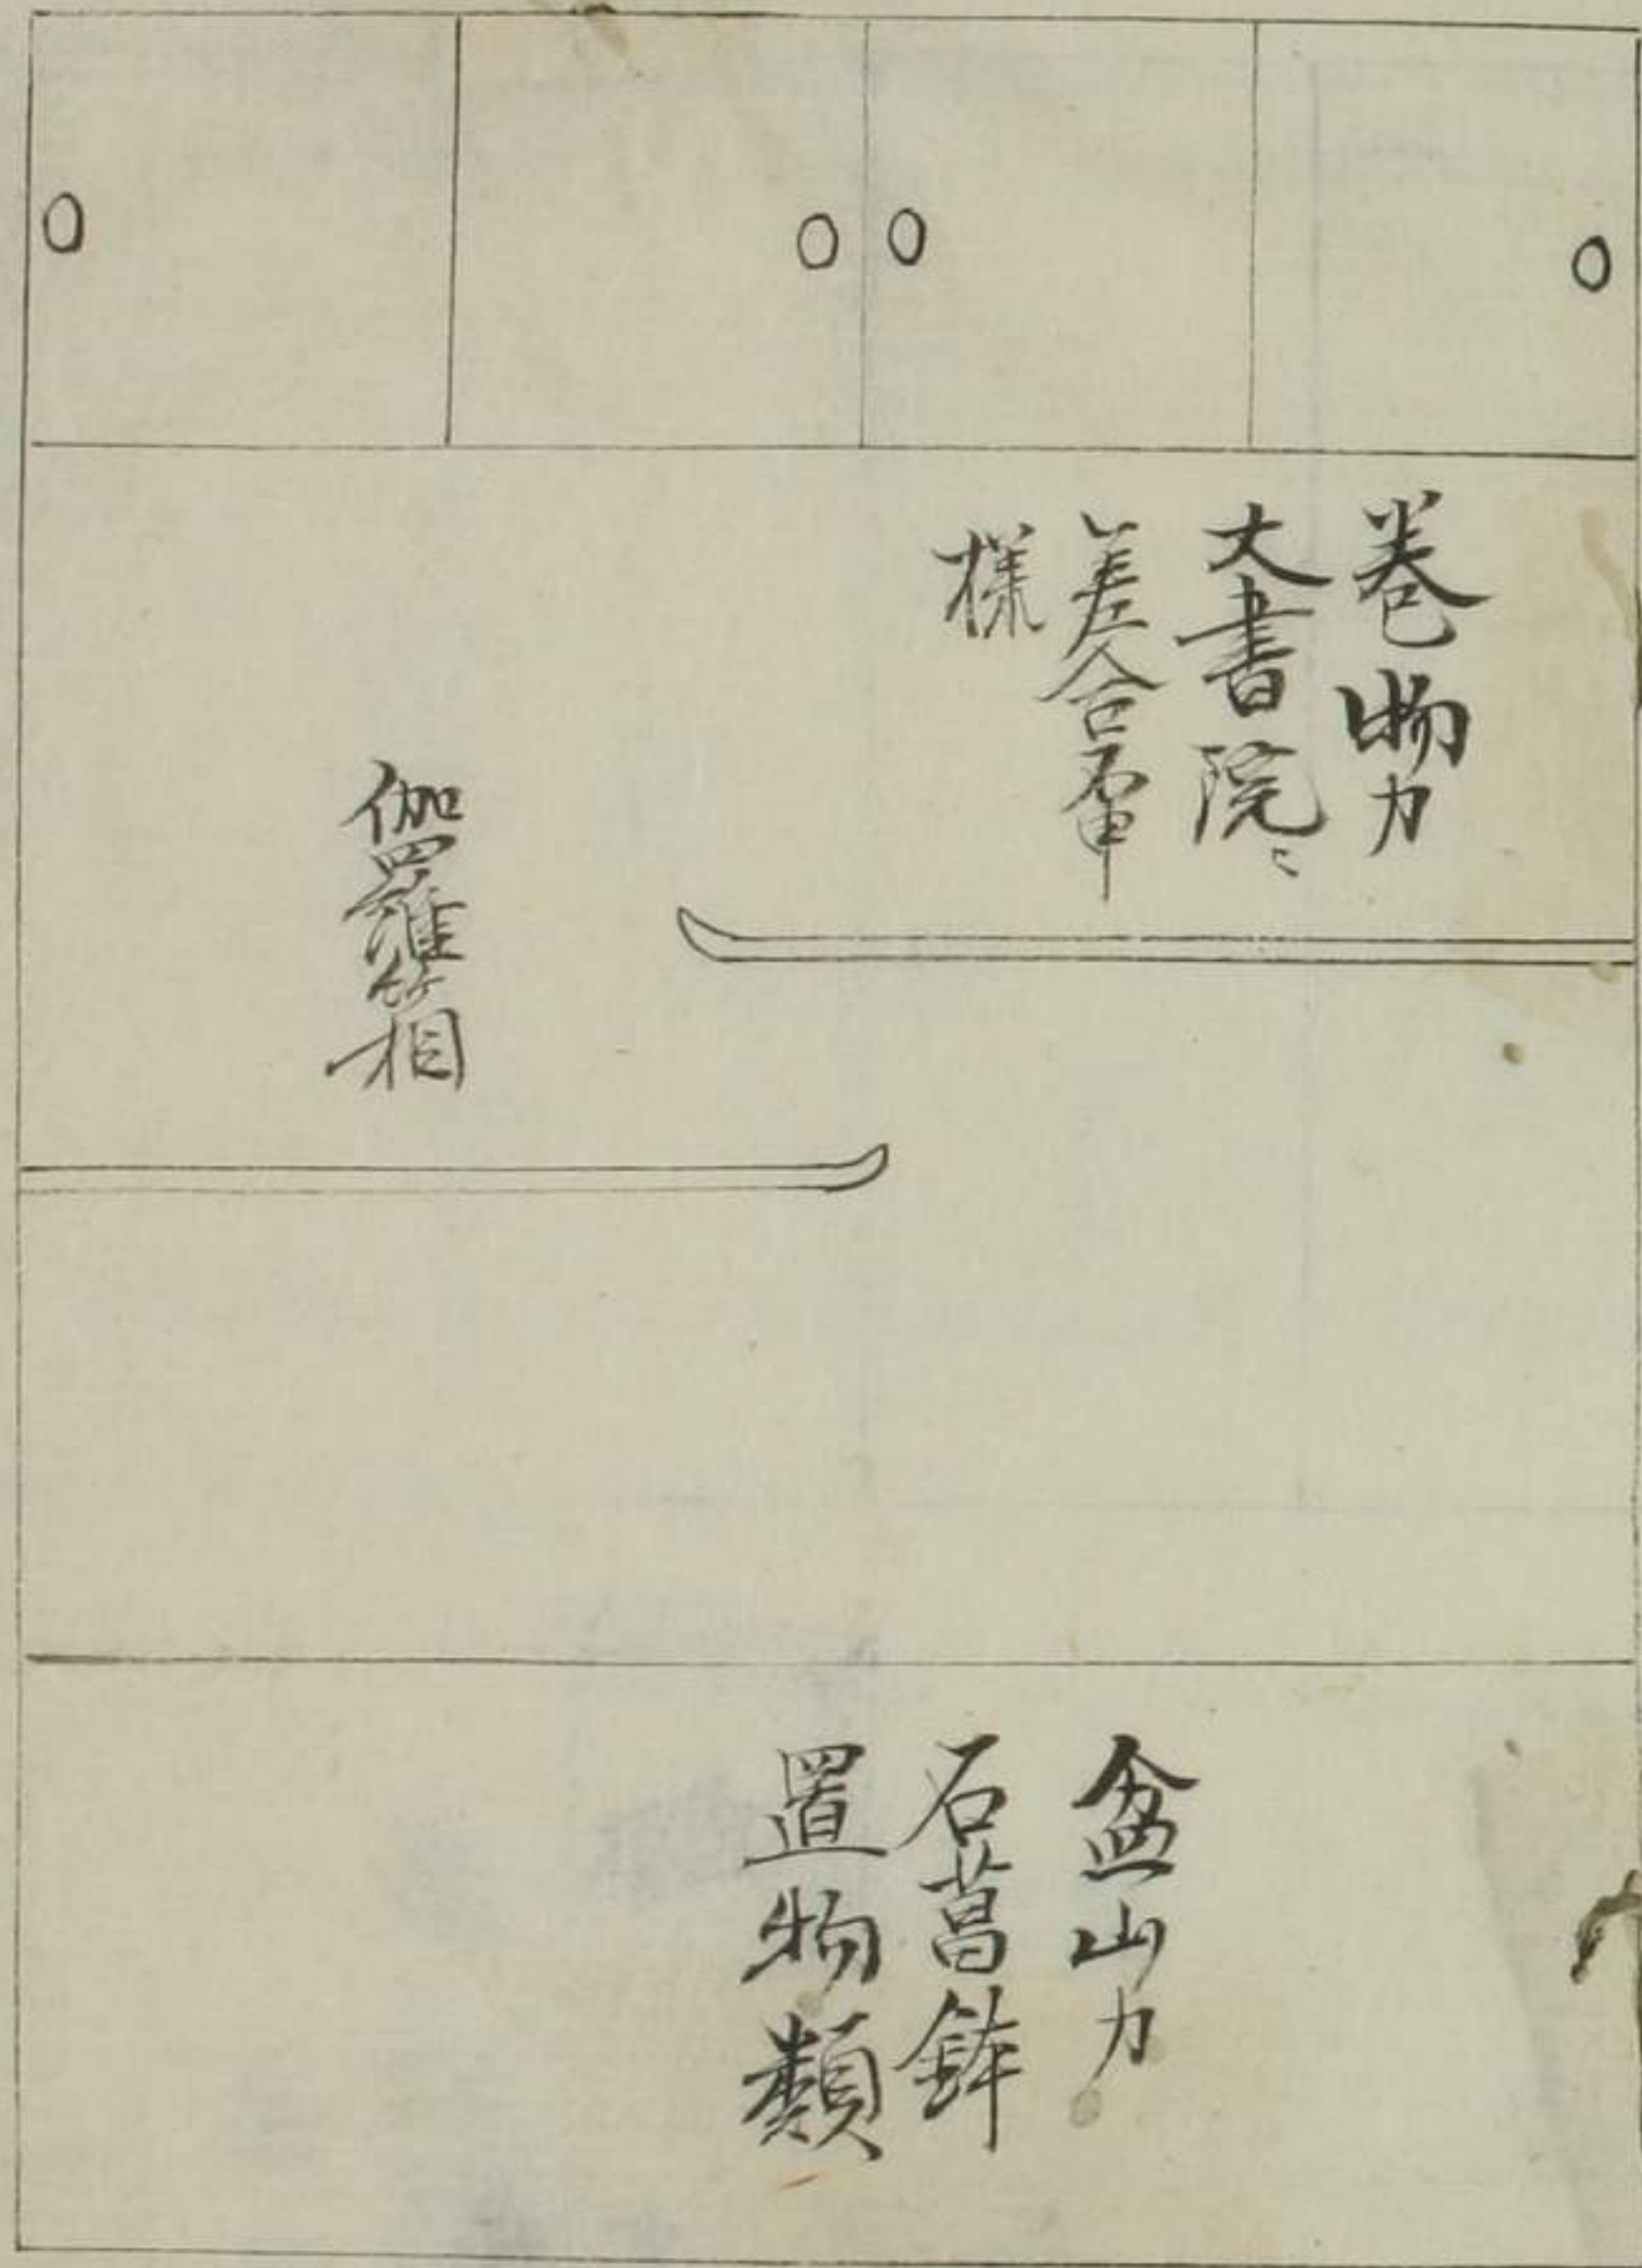 巻物カ
大書院ニ
差合不申
様
伽羅箱
盆山カ
石菖鉢
置物類